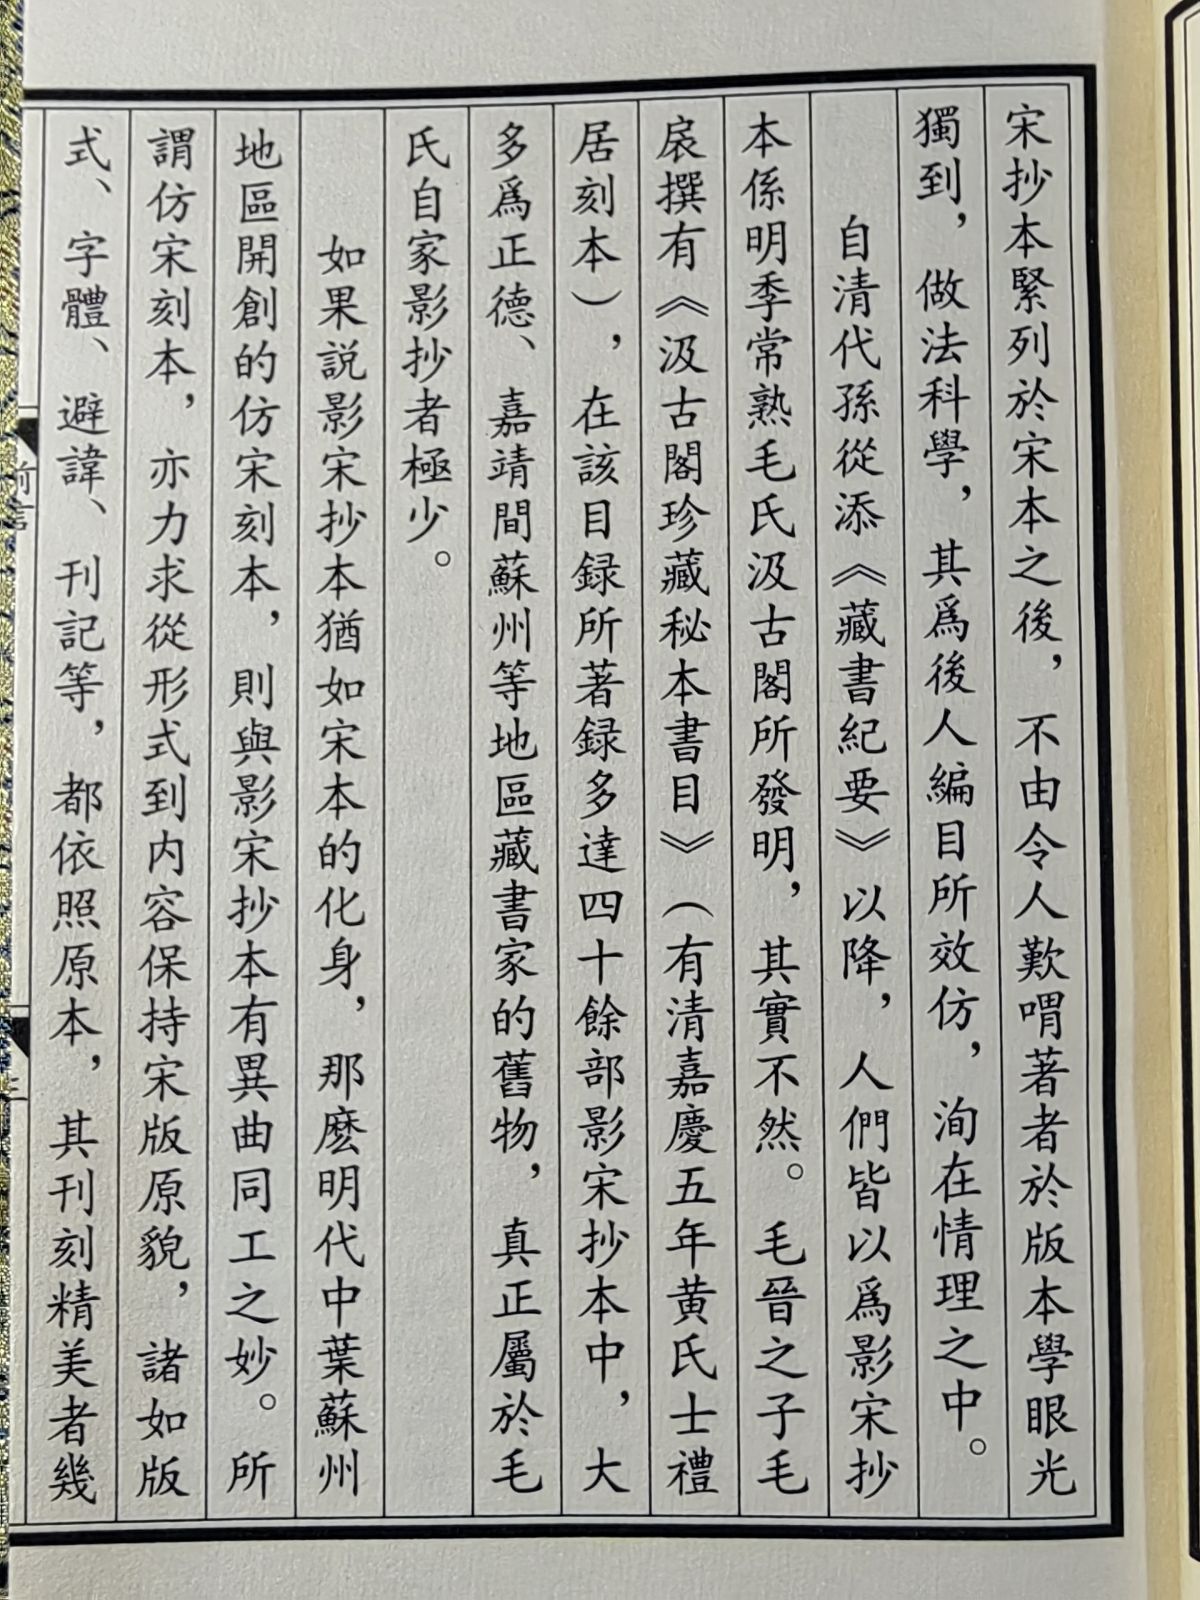 宋抄本緊列於宋本之後，不由令人歎喟著者於版本學眼光
獨到，做法科學，其爲後人編目所效仿，洵在情理之中。
自清代孫從添《藏書紀要》以降，人們皆以爲影宋抄
本係明季常熟毛氏汲古閣所發明，其實不然。毛晉之子毛
扆撰有《汲古閣珍藏秘本書目》（有清嘉慶五年黄氏士禮
居刻本），在該目録所著録多達四十餘部影宋抄本中，大
多爲正德、嘉靖間蘇州等地區藏書家的舊物，真正屬於毛
氏自家影抄者極少。
如果説影宋抄本猶如宋本的化身，那麽明代中葉蘇州
地區開創的仿宋刻本，則與影宋抄本有異曲同工之妙。所
謂仿宋刻本，亦力求從形式到内容保持宋版原貌，諸如版
式、字體、避諱、刊記等，都依照原本，其刊刻精美者幾
前言